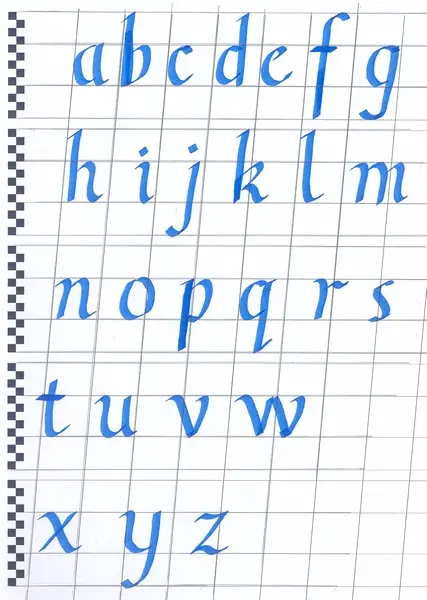 a b c d e f g
h i j k l m
n o p q r s
t u v w
x y z